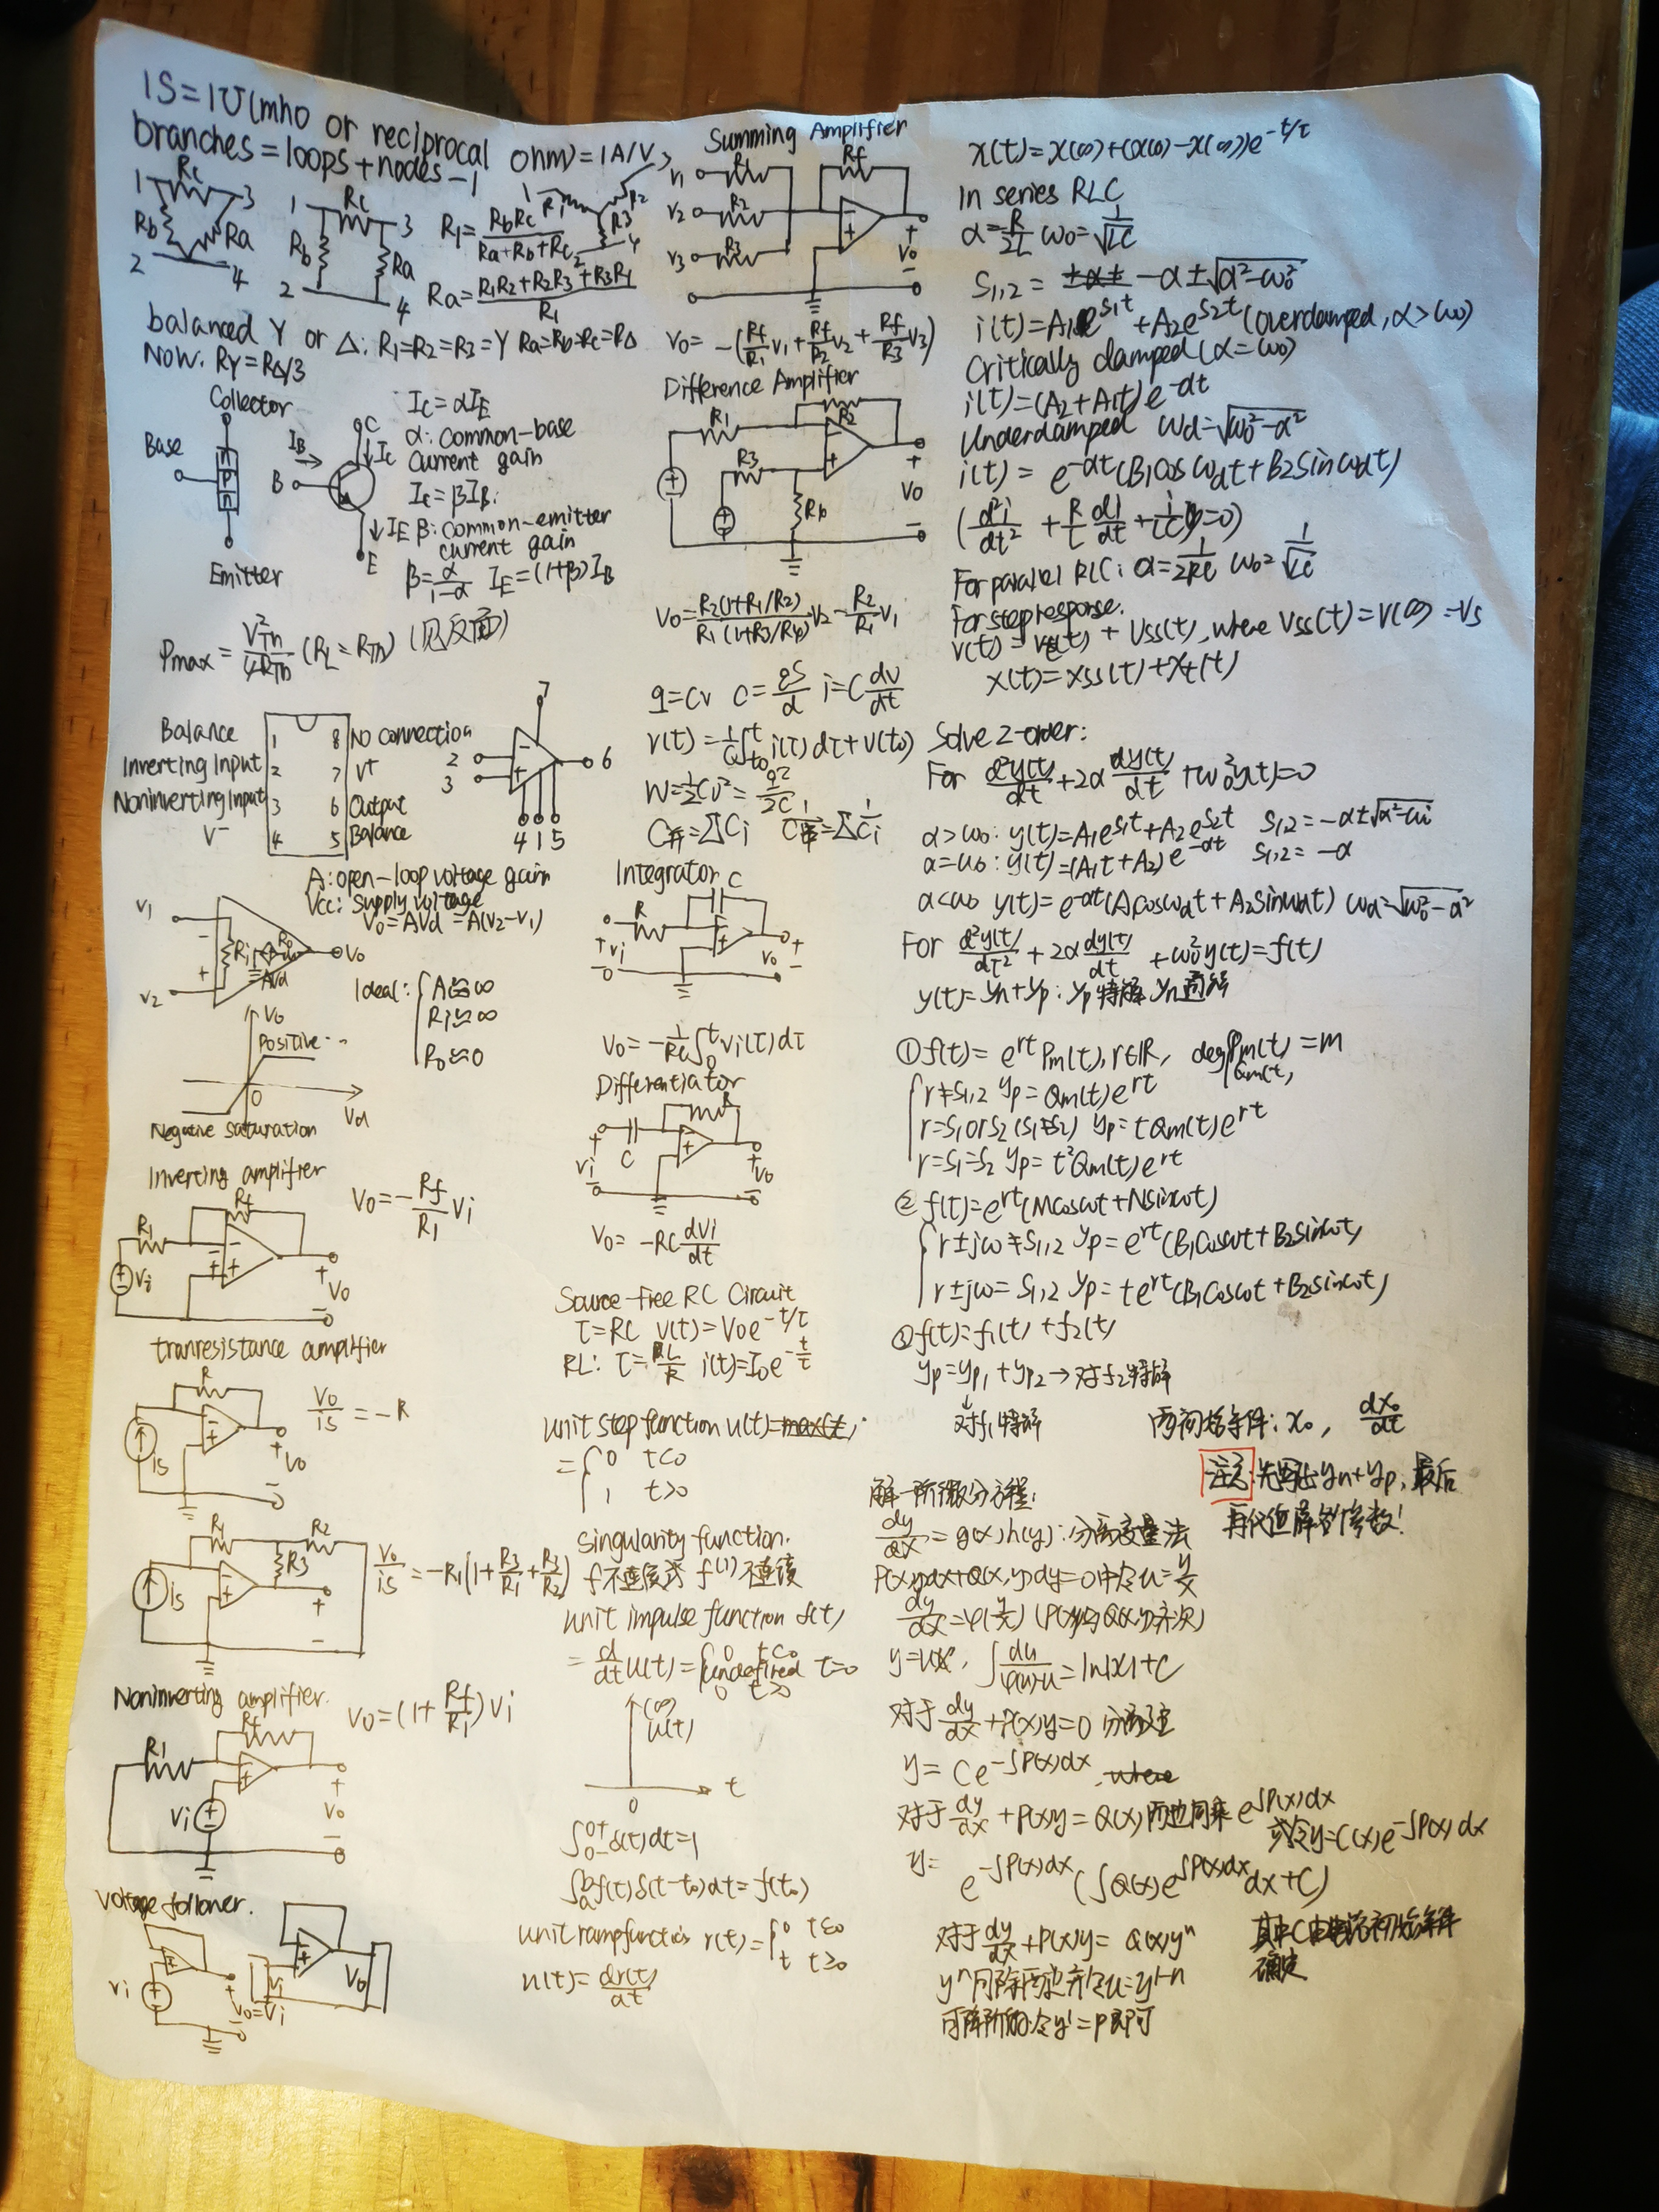 1S=1℧(mho or reciprocal ohm)=1A/V
branches=loops+nodes-1
1 Rc 3
Rb Ra
2 4
1 Rc 3
Rb Ra
2 4
R1=RbRc/(Ra+Rb+Rc)
1 R1 R2 3
R3
2 4
Ra=(R1R2+R2R3+R3R1)/R1
balanced Y or Δ: R1=R2=R3=Y Ra=Rb=Rc=RΔ
Now: RY=RΔ/3
Collector
Base
n
p
n
Emitter
IB
B
C
Ic
IE
E
Ic=αIE
α: Common-base
current gain
Ic=βIB
β: Common-emitter
current gain
β=α/(1-α) IE=(1+β)IB
Pmax=VTh²/4RTh (RL=RTh) (见反面)
Balance 1 8 No connection
Inverting Input 2 7 V+
Noninverting Input 3 6 Output
V- 4 5 Balance
7
2 - 6
3 +
4 1 5
A: open-loop voltage gain
Vcc: Supply voltage
Vo=AVd=A(v2-v1)
v1 - Ri Ro AVd Vo
v2 +
Ideal: { A≈∞
Ri≈∞
Ro≈0
Vo
Positive..
0 Vd
Negative saturation
Inverting amplifier
Rf
R1
Vi
+ Vo -
Vo=-Rf/R1 Vi
tranresistance amplifier
R
is
+ Vo -
Vo/is=-R
R1 R2
R3
is
+ -
Vo/is=-R1(1+R3/R1+R3/R2)
Noninverting amplifier.
Rf
R1
Vi
+ Vo -
Vo=(1+Rf/R1)Vi
Voltage follower.
Vi
+ Vo=Vi -
Vi Vo
Summing Amplifier
v1 R1 Rf
v2 R2
v3 R3
+ Vo -
Vo=-(Rf/R1 v1+Rf/R2 v2+Rf/R3 v3)
Difference Amplifier
R1 R2
R3
R4
+ Vo -
Vo=R2(1+R1/R2)/R1(1+R3/R4) v2-R2/R1 v1
q=Cv C=εS/d i=C dv/dt
v(t)=1/C∫t0^t i(τ)dτ+v(t0)
W=½Cv²=q²/2C
C并=ΣCi 1/C串=Σ1/Ci
Integrator
C
R
+ vi -
vo + -
Vo=-1/RC∫0^t vi(τ)dτ
Differentiator
R
+ vi -
C
+ Vo -
Vo=-RC dVi/dt
Source-free RC Circuit
τ=RC v(t)=V0e^-t/τ
RL: τ=L/R i(t)=I0e^-t/τ
Unit step function u(t)=
={0 t<0
1 t>0
Singularity function.
f不连续或f(1)不连续
Unit impulse function δ(t)
=d/dt u(t)={0 t<0
undefined t=0
0 t>0
(∞)
u(t)
0 t
∫0-^0+ δ(t)dt=1
∫a^b f(t)δ(t-t0)dt=f(t0)
Unit ramp function r(t)={0 t≤0
t t≥0
u(t)=dr(t)/dt
x(t)=x(∞)+(x(0)-x(∞))e^-t/τ
In series RLC
α=R/2L ω0=1/√LC
S1,2= -α±√α²-ω0²
i(t)=A1e^s1t+A2e^s2t (overdamped, α>ω0)
Critically damped (α=ω0)
i(t)=(A2+A1t)e^-αt
Underdamped ωd=√ω0²-α²
i(t)=e^-αt(B1cosωdt+B2sinωdt)
(d²i/dt²+R/L di/dt+1/LC i=0)
For parallel RLC: α=1/2RC ω0=1/√LC
For step response.
v(t)=vt(t)+Vss(t), where Vss(t)=v(∞)=Vs
x(t)=xss(t)+xt(t)
Solve 2-order:
For d²y(t)/dt+2α dy(t)/dt+ω0²y(t)=0
α>ω0: y(t)=A1e^s1t+A2e^s2t S1,2=-α±√α²-ω0²
α=ω0: y(t)=(A1t+A2)e^-αt S1,2=-α
α<ω0 y(t)=e^-αt(A1cosωdt+A2sinωdt) ωd=√ω0²-α²
For d²y(t)/dt²+2α dy(t)/dt+ω0²y(t)=f(t)
y(t)=yn+yp: yp特解 yn通解
①f(t)=e^rt Pm(t), r∈R, degPm(t)=m
Qm(t)
{r≠s1,2 yp=Qm(t)e^rt
r=s1 or s2 (s1≠s2) yp=tQm(t)e^rt
r=s1=s2 yp=t²Qm(t)e^rt
②f(t)=e^rt(Mcosωt+Nsinωt)
{r±jω≠s1,2 yp=e^rt(B1cosωt+B2sinωt)
r±jω=s1,2 yp=te^rt(B1cosωt+B2sinωt)
③f(t)=f1(t)+f2(t)
yp=yp1+yp2→对f2特解
↓
对f1特解
两初始条件: x0, dx0/dt
注意:先写出yn+yp,最后
再代值解出参数!
解一阶微分方程:
dy/dx=g(x)h(y):分离变量法
P(x,y)dx+Q(x,y)dy=0中令u=y/x
dy/dx=φ(y/x) (P(x,y)与Q(x,y)齐次)
y=ux, ∫du/(φ(u)-u)=ln|x|+C
对于dy/dx+P(x)y=0 分离变量
y=Ce^-∫P(x)dx, where
对于dy/dx+P(x)y=Q(x)两边同乘e^∫P(x)dx
或令y=C(x)e^-∫P(x)dx
y=e^-∫P(x)dx(∫Q(x)e^∫P(x)dx dx+C)
其中C由初始条件
确定
对于dy/dx+P(x)y=Q(x)y^n
y^n同除两边并令u=y^1-n
可降阶的:令y'=P即可